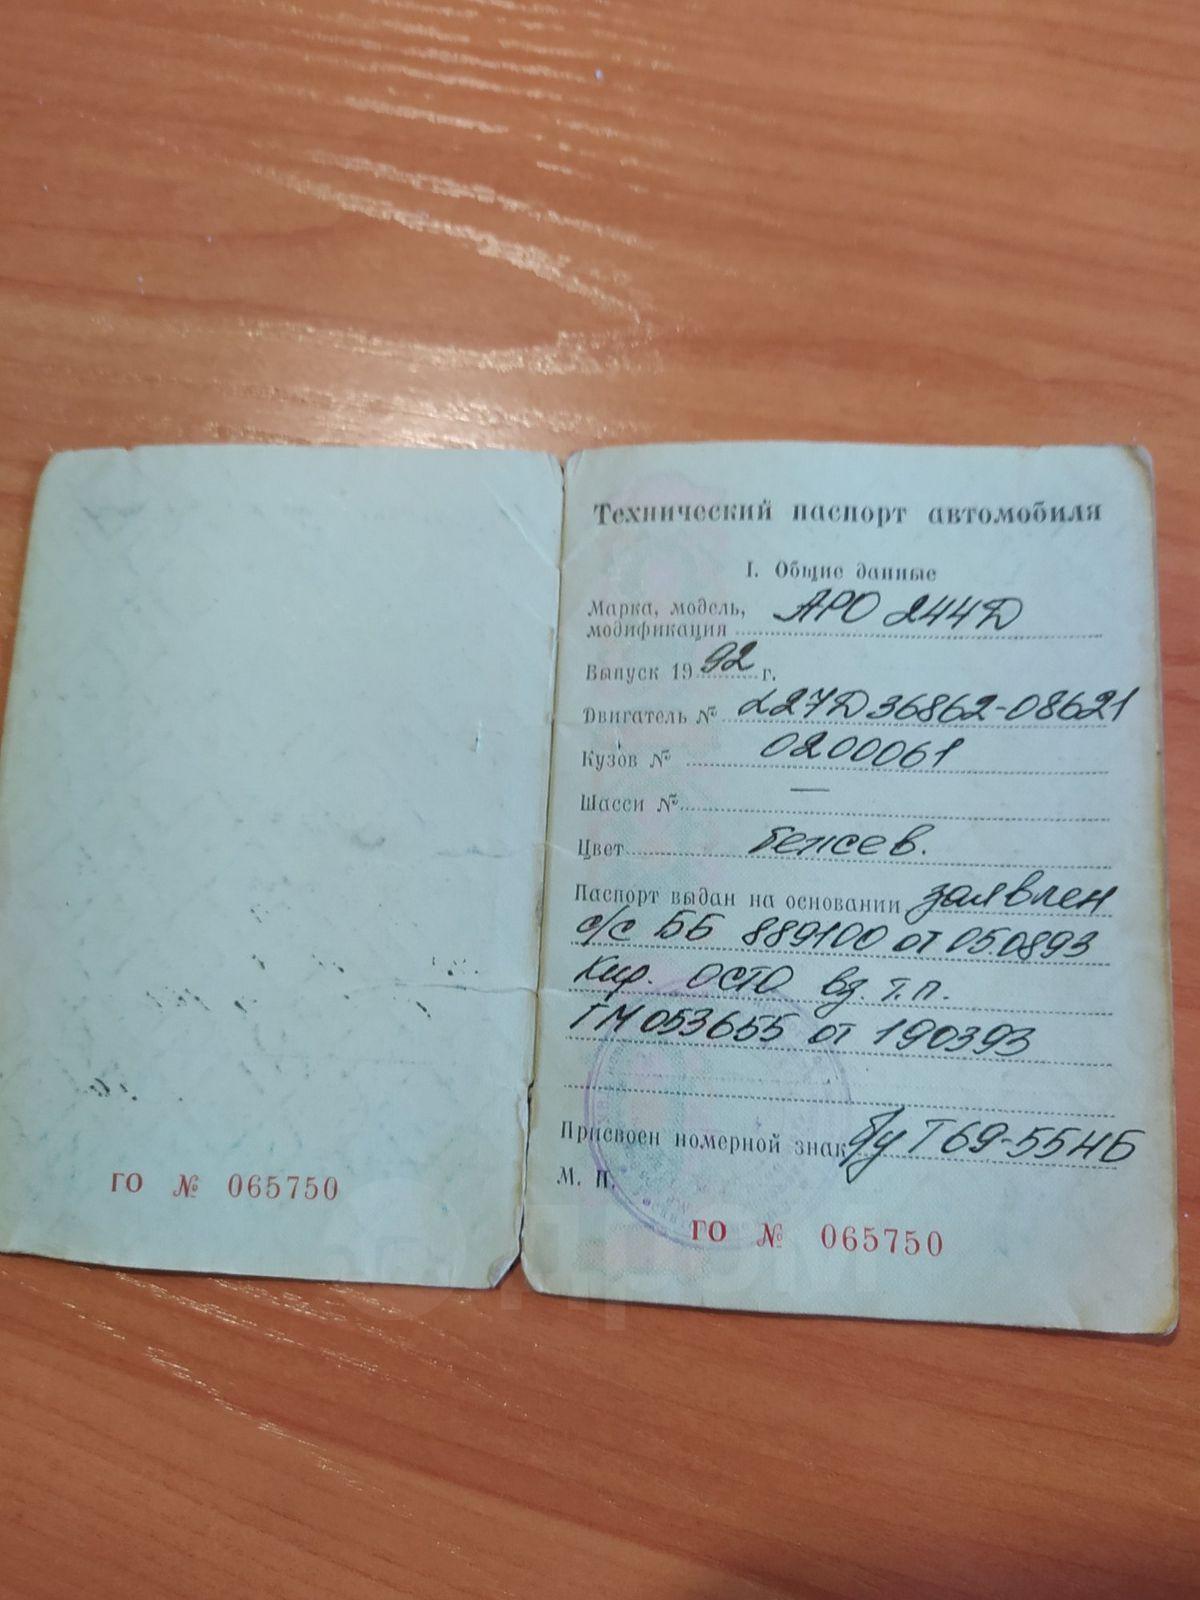 Технический паспорт автомобиля
I. Общие данные
Марка, модель, АРО 244Д
модификация
Выпуск 1992 г.
Двигатель № L27D36862-08621
Кузов № 0200061
Шасси № —
Цвет бежев.
Паспорт выдан на основании заявлен
с/с ББ 889100 от 050893
Кир. ОСТО вз. т.п.
ТМ 053655 от 190393
Присвоен номерной знак б/у Т69-55НБ
М. П.
ГО № 065750
ГО № 065750